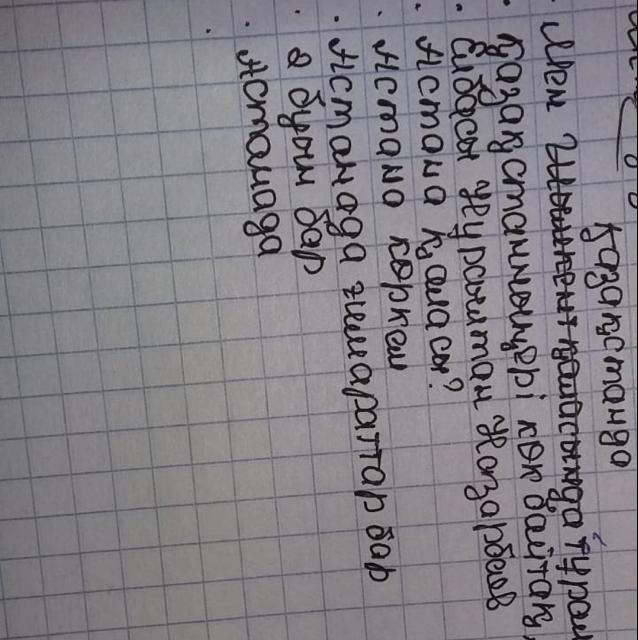 Қазақстанда
Мен Шымкент қаласында тұрам
Қазақстанның жері кең байтақ
Елбасы Нұрсұлтан Назарбаев
Астана қаласы?
Астана көркем
Астанада ғимараттар бар
2 буын бар
Астанада